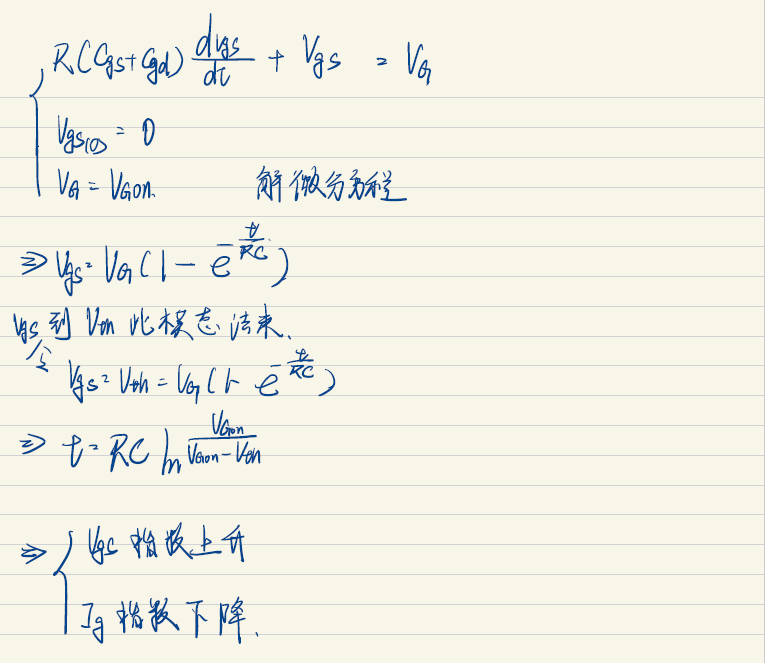 R(Cgs+Cgd) dvgs/dt + Vgs = VG
Vgs(0) = 0
VG = VGon. 解微分方程
⇒ Vgs = VG(1 - e^(-t/RC))
Vgs到Vth 此模态结束.
令 Vgs = Vth = VG(1 - e^(-t/RC))
⇒ t = RC ln VGon/(VGon-Vth)
⇒ { Vgs 指数上升
Ig 指数下降.